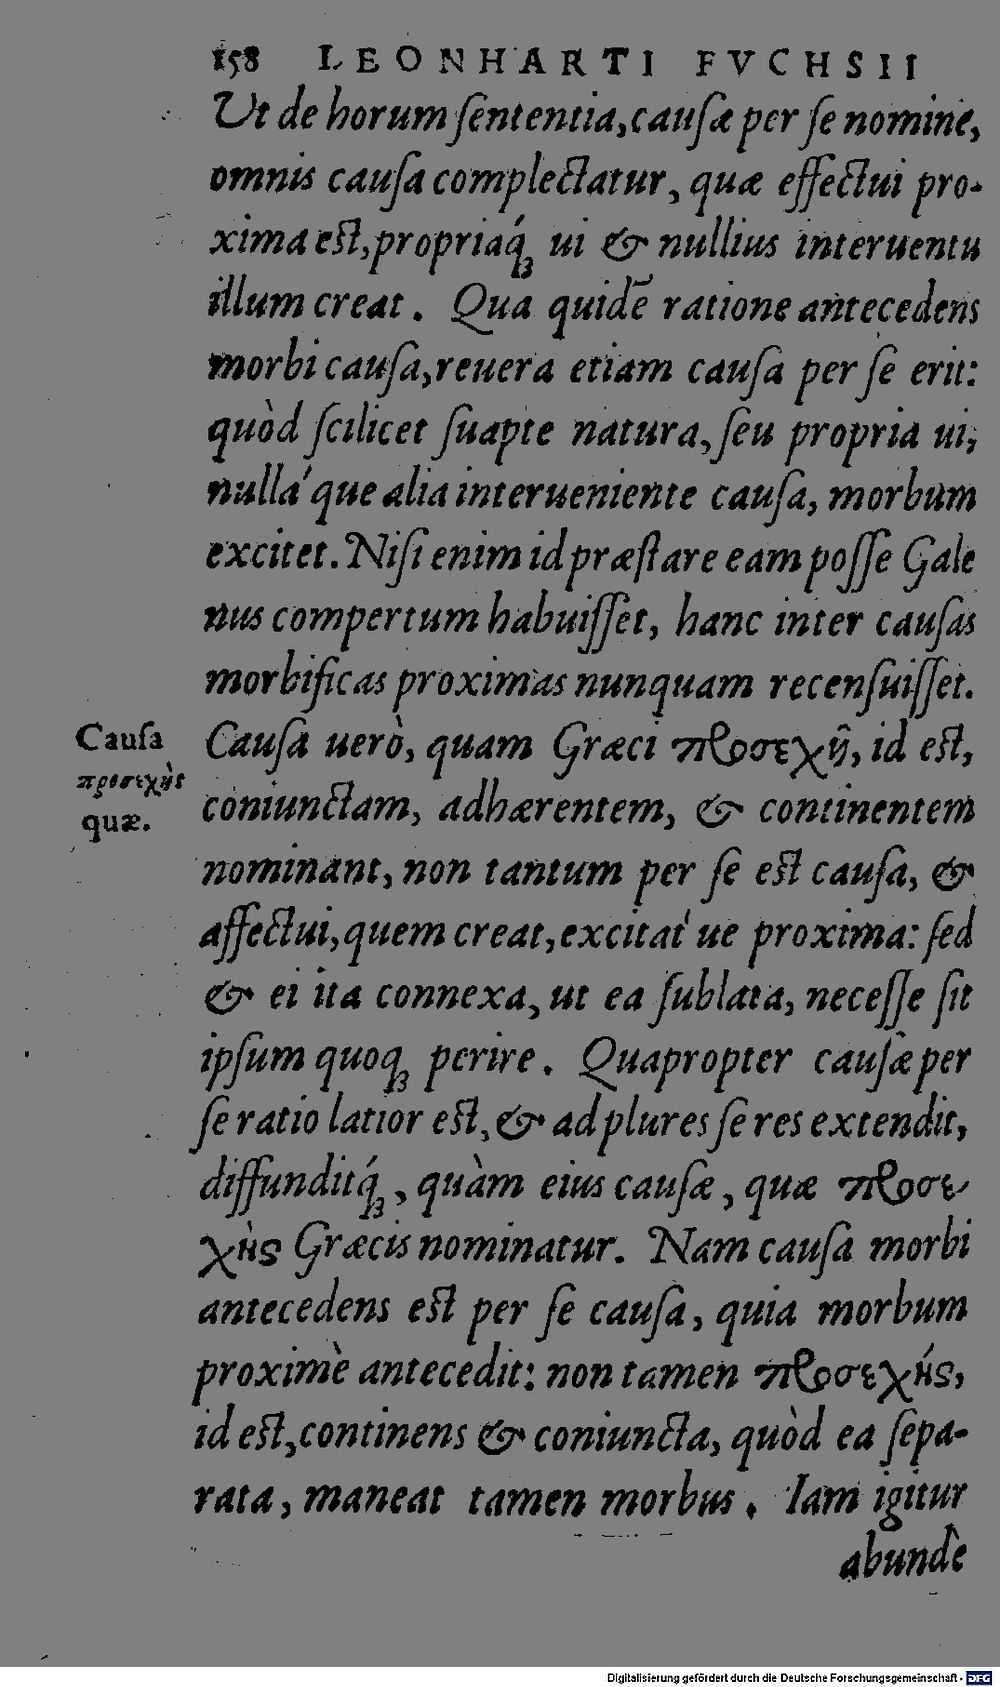 158 LEONHARTI FVCHSII
Ut de horum ſententia, cauſæ per ſe nomine,
omnis cauſa complectatur, quæ effectui pro-
xima est, propriaq́ꝫ ui & nullius interuentu
illum creat. Qua quidē ratione antecedens
morbi cauſa, reuera etiam cauſa per ſe erit:
quòd ſcilicet ſuapte natura, ſeu propria ui,
nulla´que alia interueniente cauſa, morbum
excitet. Niſi enim id præſtare eam poſſe Gale
nus compertum habuiſſet, hanc inter cauſas
morbificas proximas nunquam recenſuiſſet.
Cauſa uerò, quam Græci προσεχῆ, id est,
coniunctam, adhærentem, & continentem
nominant, non tantum per ſe est cauſa, &
affectui, quem creat, excitat´ue proxima: ſed
& ei ita connexa, ut ea ſublata, neceſſe ſit
ipſum quoqꝫ perire. Quapropter cauſæ per
ſe ratio latior est, & ad plures ſe res extendit,
diffunditq́ꝫ, quàm eius cauſæ, quæ προσε-
χὴς Græcis nominatur. Nam cauſa morbi
antecedens est per ſe cauſa, quia morbum
proximè antecedit: non tamen προσεχής,
id est, continens & coniuncta, quòd ea ſepa-
rata, maneat tamen morbus. Iam igitur
abundè
Cauſa
προσεχὴς
quæ.
Digitalisierung gefördert durch die Deutsche Forschungsgemeinschaft - DFG